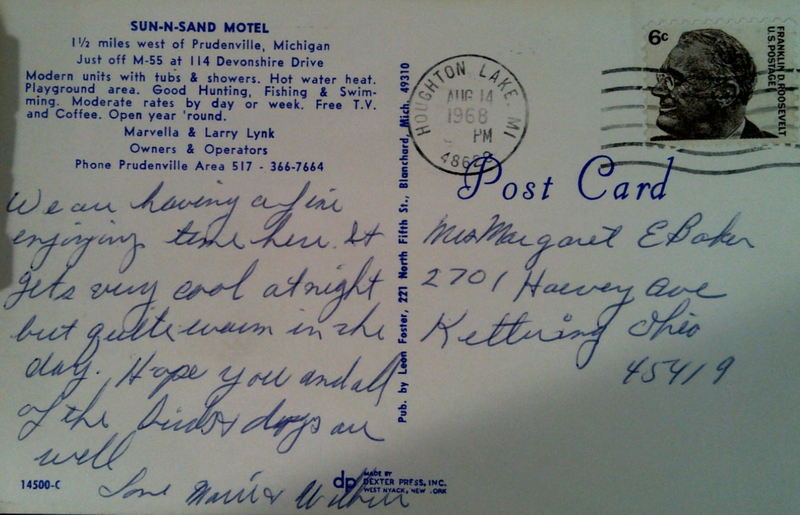 SUN-N-SAND MOTEL
1½ miles west of Prudenville, Michigan
Just off M-55 at 114 Devonshire Drive
Modern units with tubs & showers. Hot water heat.
Playground area. Good Hunting, Fishing & Swim-
ming. Moderate rates by day or week. Free T.V.
and Coffee. Open year 'round.
Marvella & Larry Lynk
Owners & Operators
Phone Prudenville Area 517 - 366-7664
We are having a fine
enjoying time here. It
gets very cool at night
but quite warm in the
day. Hope you and all
of the birds & dogs are
well
Love Marie & Wilbur
14500-C
Pub. by Leon Foster, 221 North Fifth St., Blanchard, Mich. 49310
dp MADE BY
DEXTER PRESS, INC.
WEST NYACK, NEW YORK
HOUGHTON LAKE, MI
AUG 14
1968
PM
6c
FRANKLIN D. ROOSEVELT
U.S. POSTAGE
Post Card
Mrs Margaret E Baker
2701 Harvey Ave
Kettering Ohio
45419